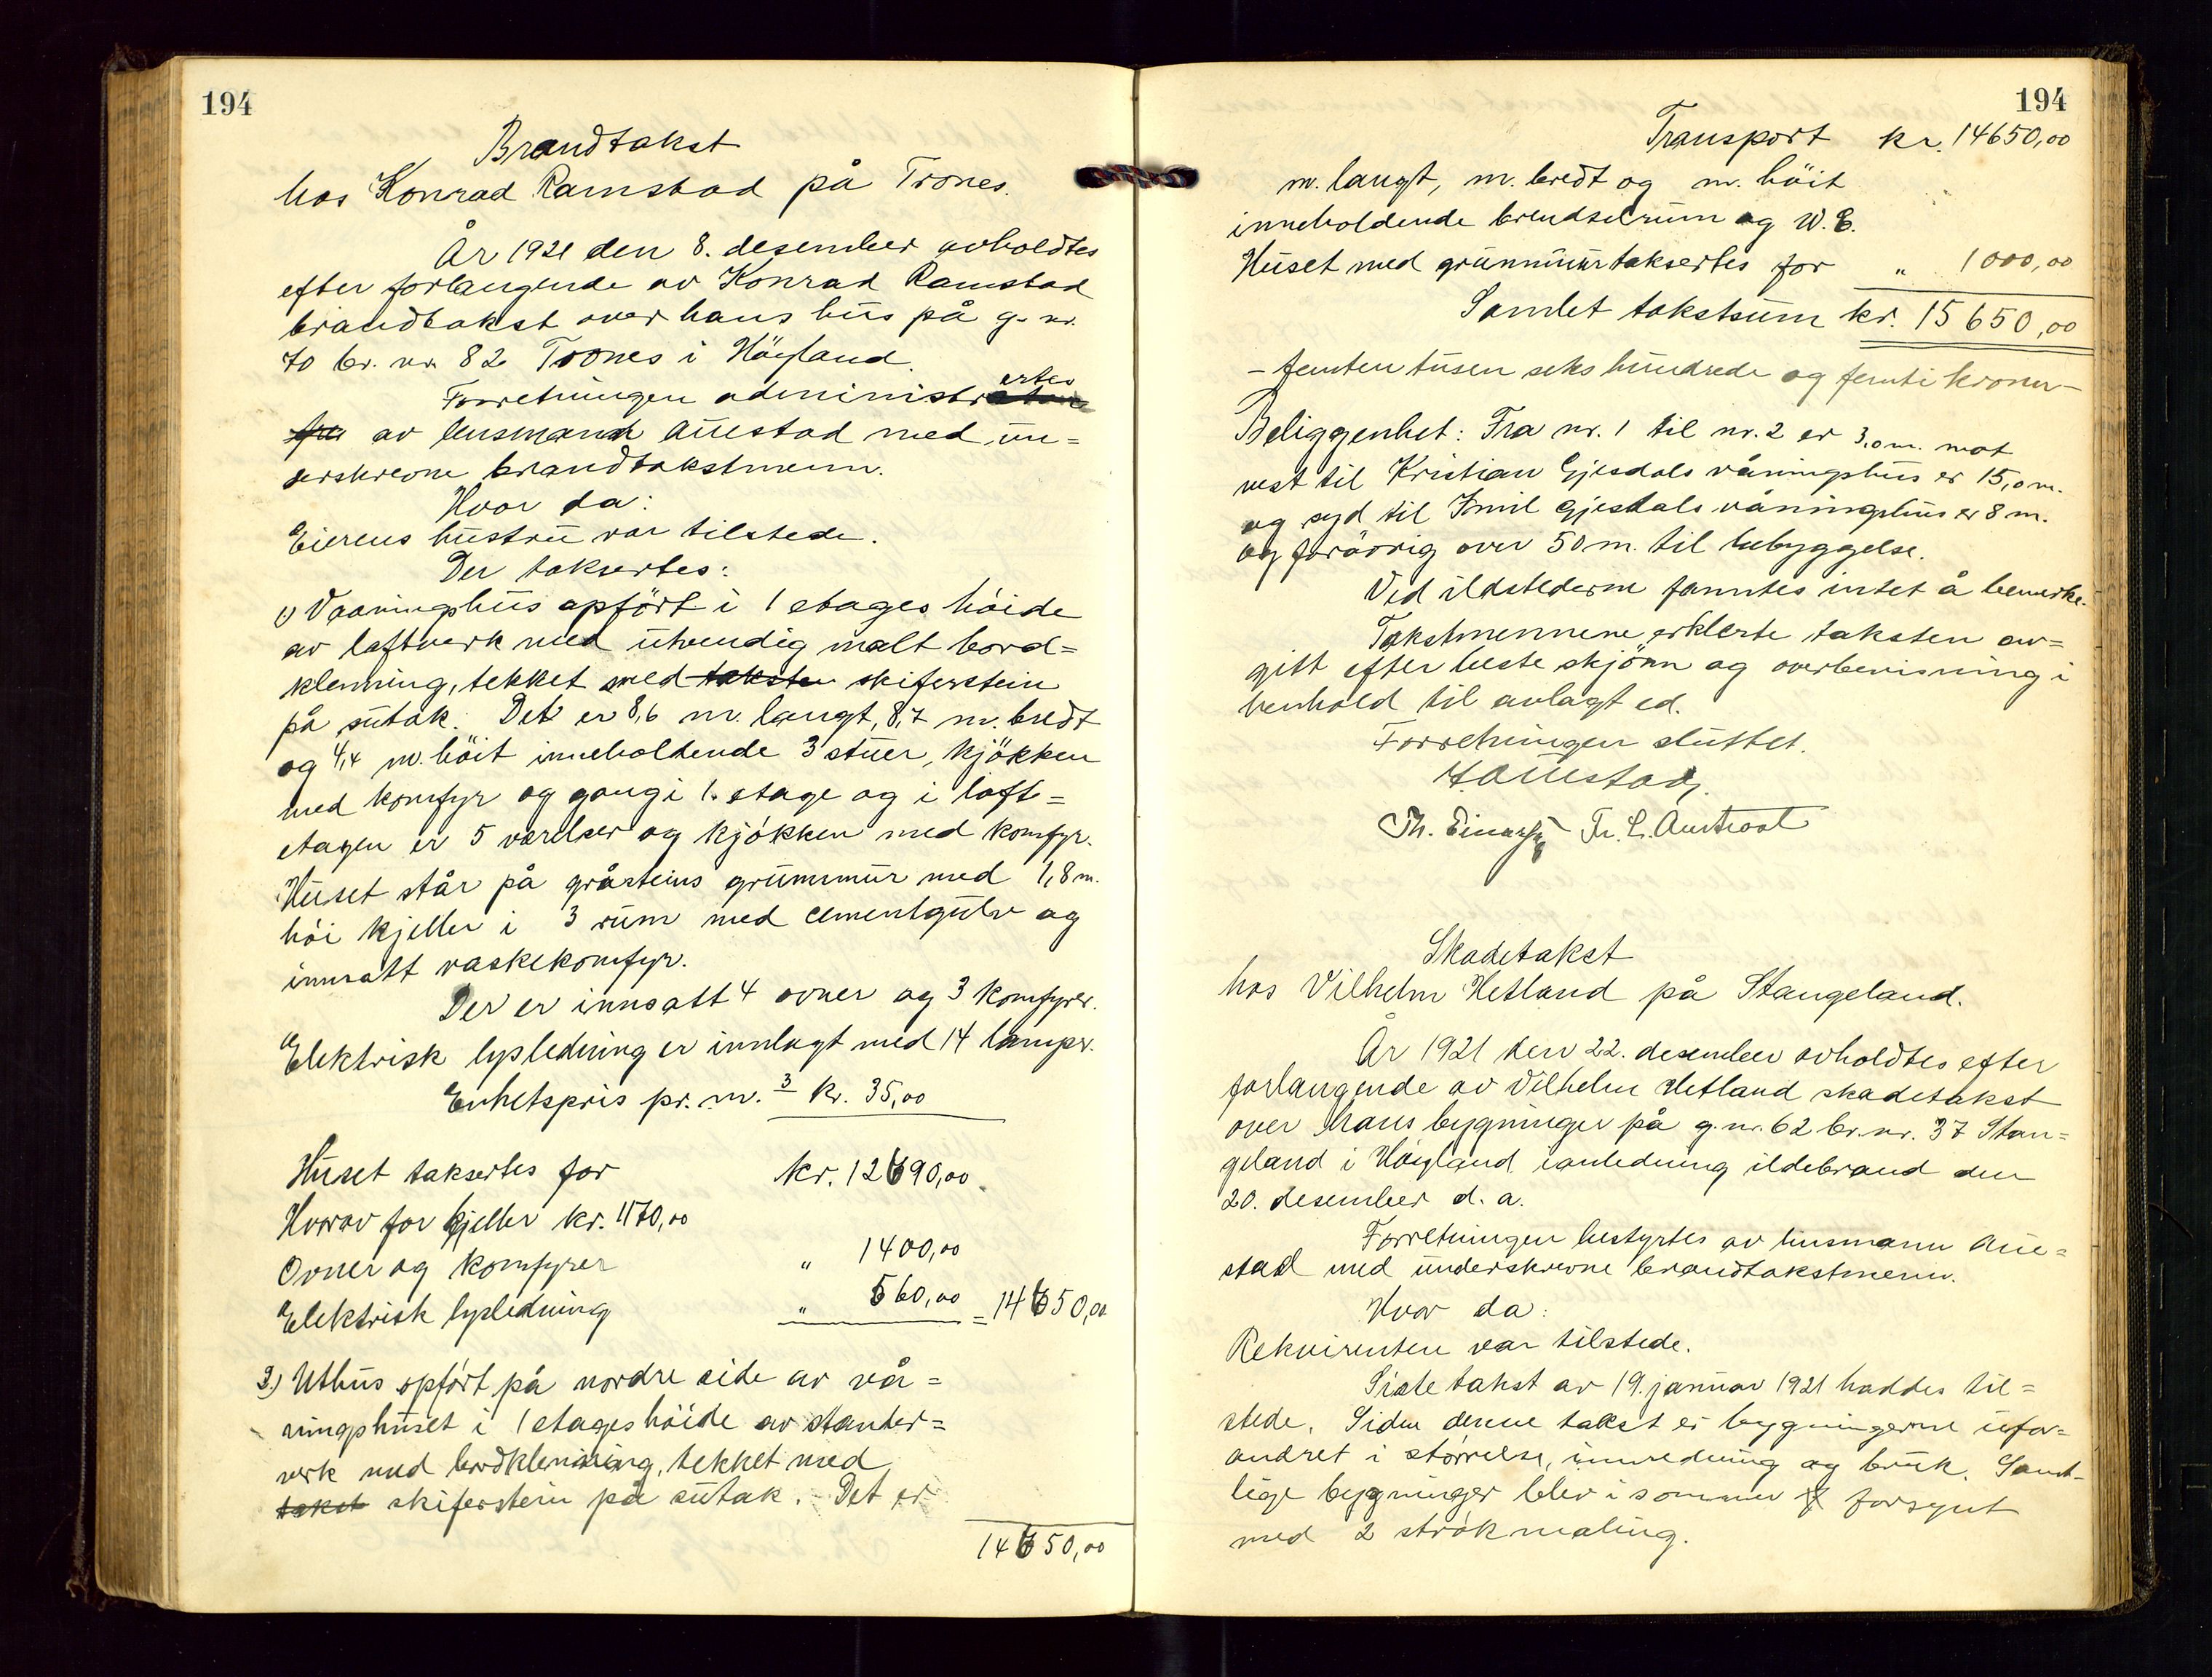 194
Brandtakst
hos Konrad Ramstad på Trones.
År 1921 den 8. desember avholdtes
efter forlangende av Konrad Ramstad
brandtakst over hans hus på g. nr.
70 br. nr. 82 Trones i Höyland.
Forretningen administrertes
av lensmand Auestad med un=
derskrevne brandtakstmenn.
Hvor da:
Eierens hustru var tilstede.
Der taksertes:
1) Vaaningshus opført i 1 etages höide
av laftverk med utvendig malt bord=
klenning, tekket med taksten skiferstein
på sutak. Det er 8,6 m. langt, 8,7 m. bredt
og 4,4 m. höit inneholdende 3 stuer, kjökken
med komfyr og gang i 1. etage og i loft=
etagen er 5 værelser og kjökken med komfyr.
Huset står på gråsteins grunnmur med 1,8 m.
höi kjeller i 3 rum med cementgulv og
innsatt vaskekomfyr.
Der er innsatt 4 ovner og 3 komfyrer.
Elektrisk lysledning er innlagt med 14 lamper.
Enhetspris pr. m.3 kr. 35,00
Huset taksertes for kr. 12690,00
Hvorav for kjeller kr. 1170,00
Ovner og komfyrer " 1400,00
Elektrisk lysledning " 560,00 = 14650,00
2) Uthus opført på nordre side av vå=
ningshuset i 1 etages höide av stender=
verk med bordklenning, tekket med
taket skiferstein på sutak. Det er
14650,00
194
Transport kr. 14650,00
m. langt, m. bredt og m. höit
inneholdende brendselrum og W.C.
Huset med grunnmur taksertes for " 1000,00
Samlet takstsum kr. 15650,00
- femten tusen seks hundrede og femti kroner -
Beliggenhet: Fra nr. 1 til nr. 2 er 3,0 m. mot
vest til Kristian Gjesdals våningshus er 15,0 m.
og syd til Emil Gjesdals våningshus er 8 m.
og forövrig over 50 m. til bebyggelse.
Ved ildstederne fanntes intet å bemerke.
Takstmennene erklerte taksten av=
gitt efter beste skjönn og overbevisning i
henhold til avlagt ed.
Forretningen sluttet.
Auestad
Th. Fr. L. Austraat
Skadetakst
hos Vilhelm Hetland på Stangeland.
År 1921 den 22. desember avholdtes efter
forlangende av Vilhelm Hetland skadetakst
over hans bygninger på g. nr. 62 br. nr. 37 Stan=
geland i Höyland i anledning ildebrand den
20. desember d. a.
Forretningen bestyrtes av lensmann Aue=
stad med underskrevne brandtakstmenn.
Hvor da:
Rekvirenten var tilstede.
Siste takst av 19. januar 1921 haddes til=
stede. Siden denne takst er bygningerne ufor=
andret i störrelse, innredning og bruk. Samt=
lige bygninger blev i sommer forsynt
med 2 strök maling.